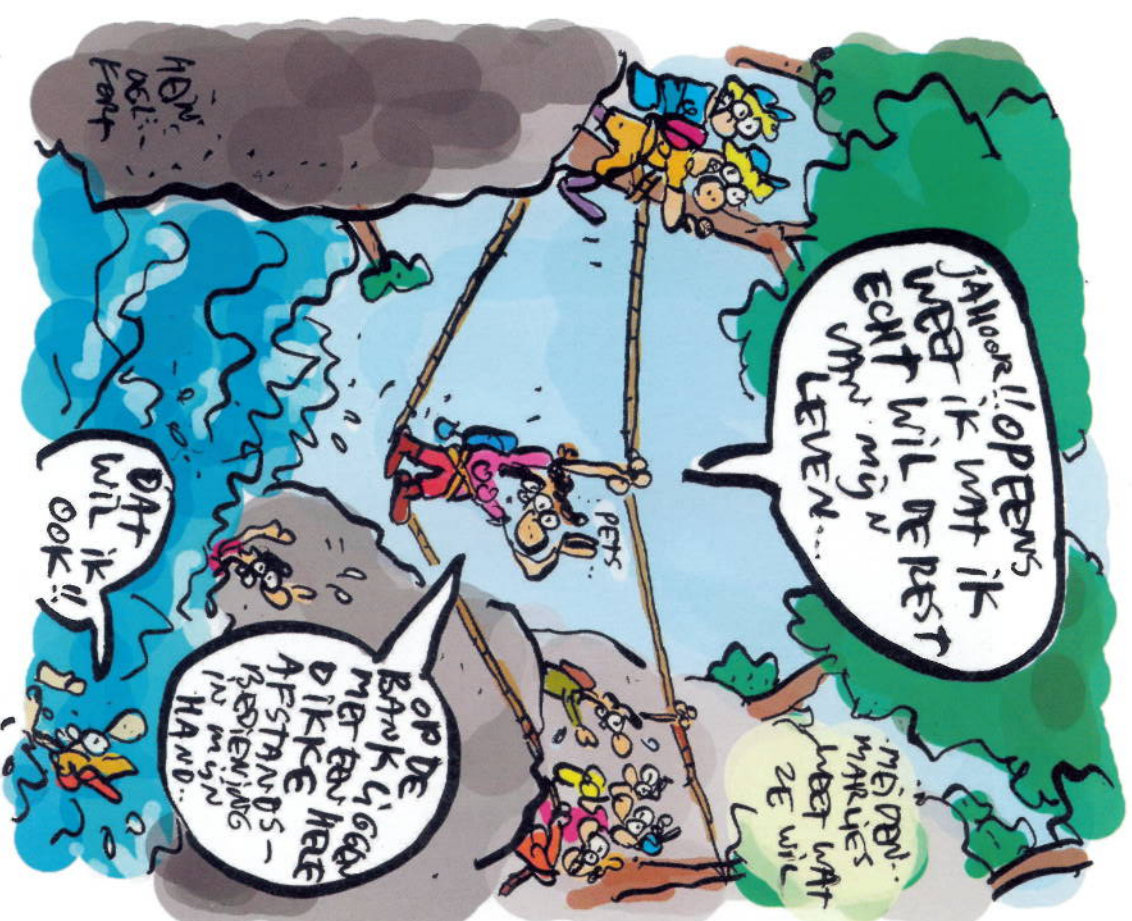 JAHOOR!! OPEENS
WEET IK WAT IK
ECHT WIL DE REST
VAN MIJN
LEVEN...
MEIDEN..
MARLIES
WEET WAT
ZE WIL
PETS..
OP DE
BANK LIGGEN
MET EEN HELE
DIKKE
AFSTANDS-
BEDIENING
IN MIJN
HAND..
DAT
WIL IK
OOK!!
HEIN
DE
KORT